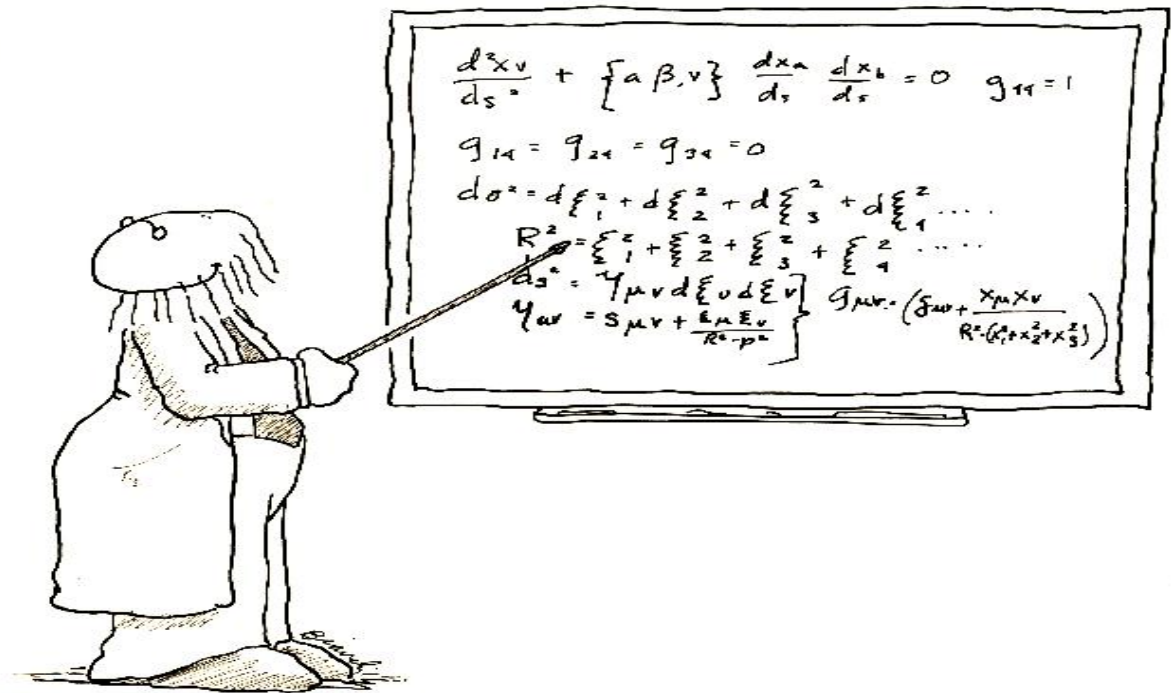 d²xν/ds² + {αβ,ν} dxₐ/ds dx_b/ds = 0 g₄₄ = 1
g₁₄ = g₂₄ = g₃₄ = 0
dσ² = dξ₁² + dξ₂² + dξ₃² + dξ₄² ....
R² = ξ₁² + ξ₂² + ξ₃² + ξ₄² .....
ds² = γμν dξυ dξν }
γμν = Sμν + ξμ ξν/R²-p² } gμν = (δμν + xμxν/R²-(x₁²+x₂²+x₃²))